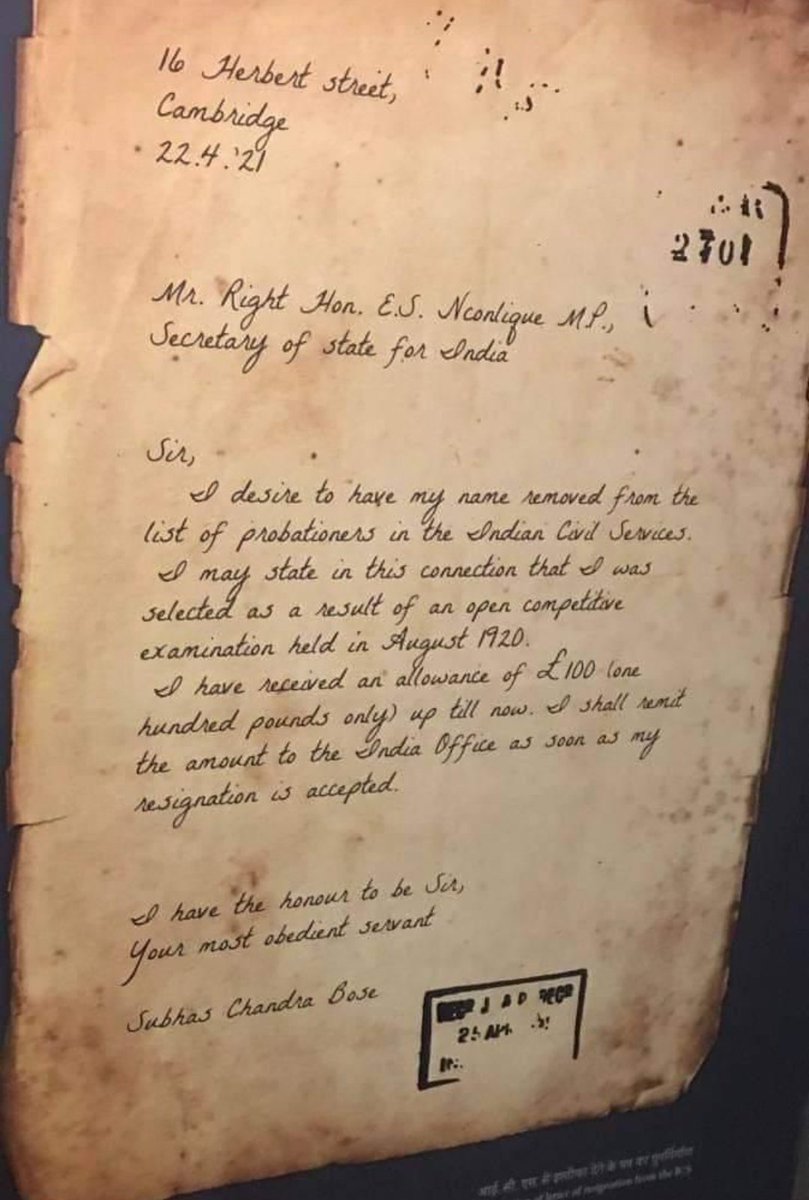 16 Herbert street,
Cambridge
22.4.'21
2701
Mr. Right Hon. E.S. Nconlique MP.,
Secretary of state for India
Sir,
I desire to have my name removed from the
list of probationers in the Indian Civil Services.
I may state in this connection that I was
selected as a result of an open competitive
examination held in August 1920.
I have received an allowance of £100 (one
hundred pounds only) up till now. I shall remit
the amount to the India Office as soon as my
resignation is accepted.
I have the honour to be Sir,
Your most obedient servant
Subhas Chandra Bose
आई. सी. एस. से इस्तीफा देने के पत्र का
of resignation from the ICS